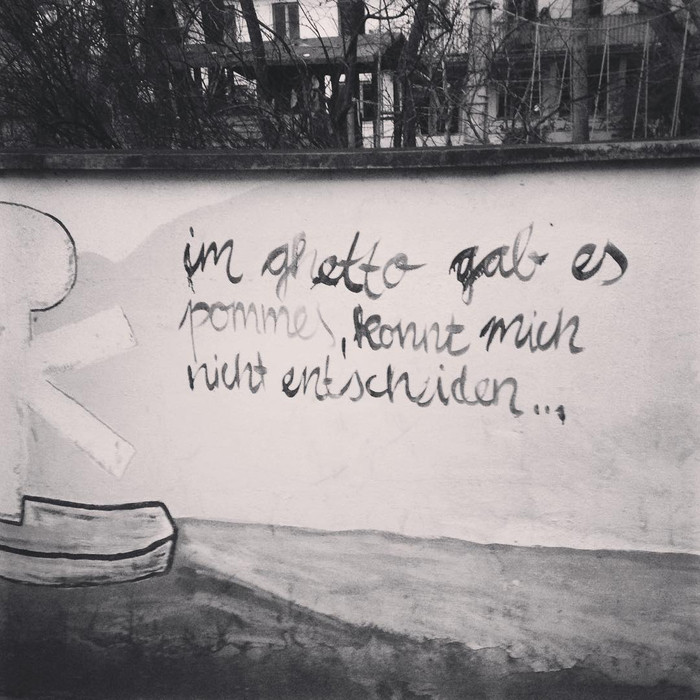 im ghetto gab es
pommes, konnt mich
nicht entscheiden...